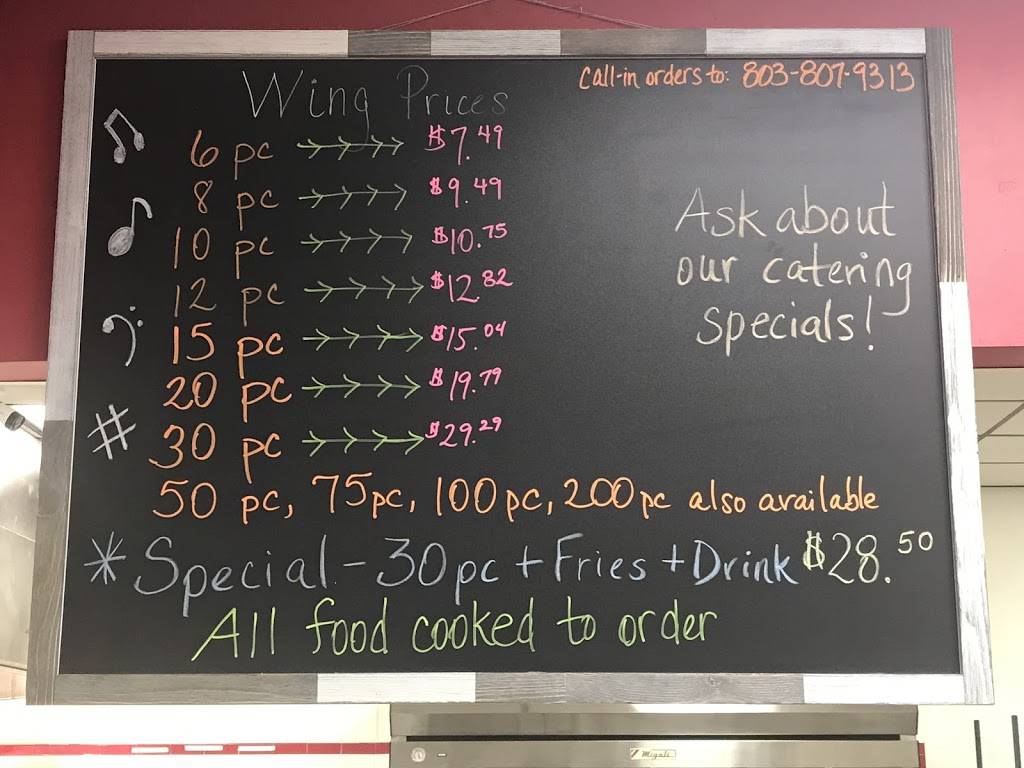 Wing Prices
Call-in orders to: 803-807-9313
6 pc $7.49
8 pc $9.49
10 pc $10.75
12 pc $12.82
15 pc $15.04
20 pc $19.79
30 pc $29.29
50 pc, 75pc, 100pc, 200pc also available
Ask about
our catering
specials!
*Special - 30pc + Fries + Drink $28.50
All food cooked to order
Migali